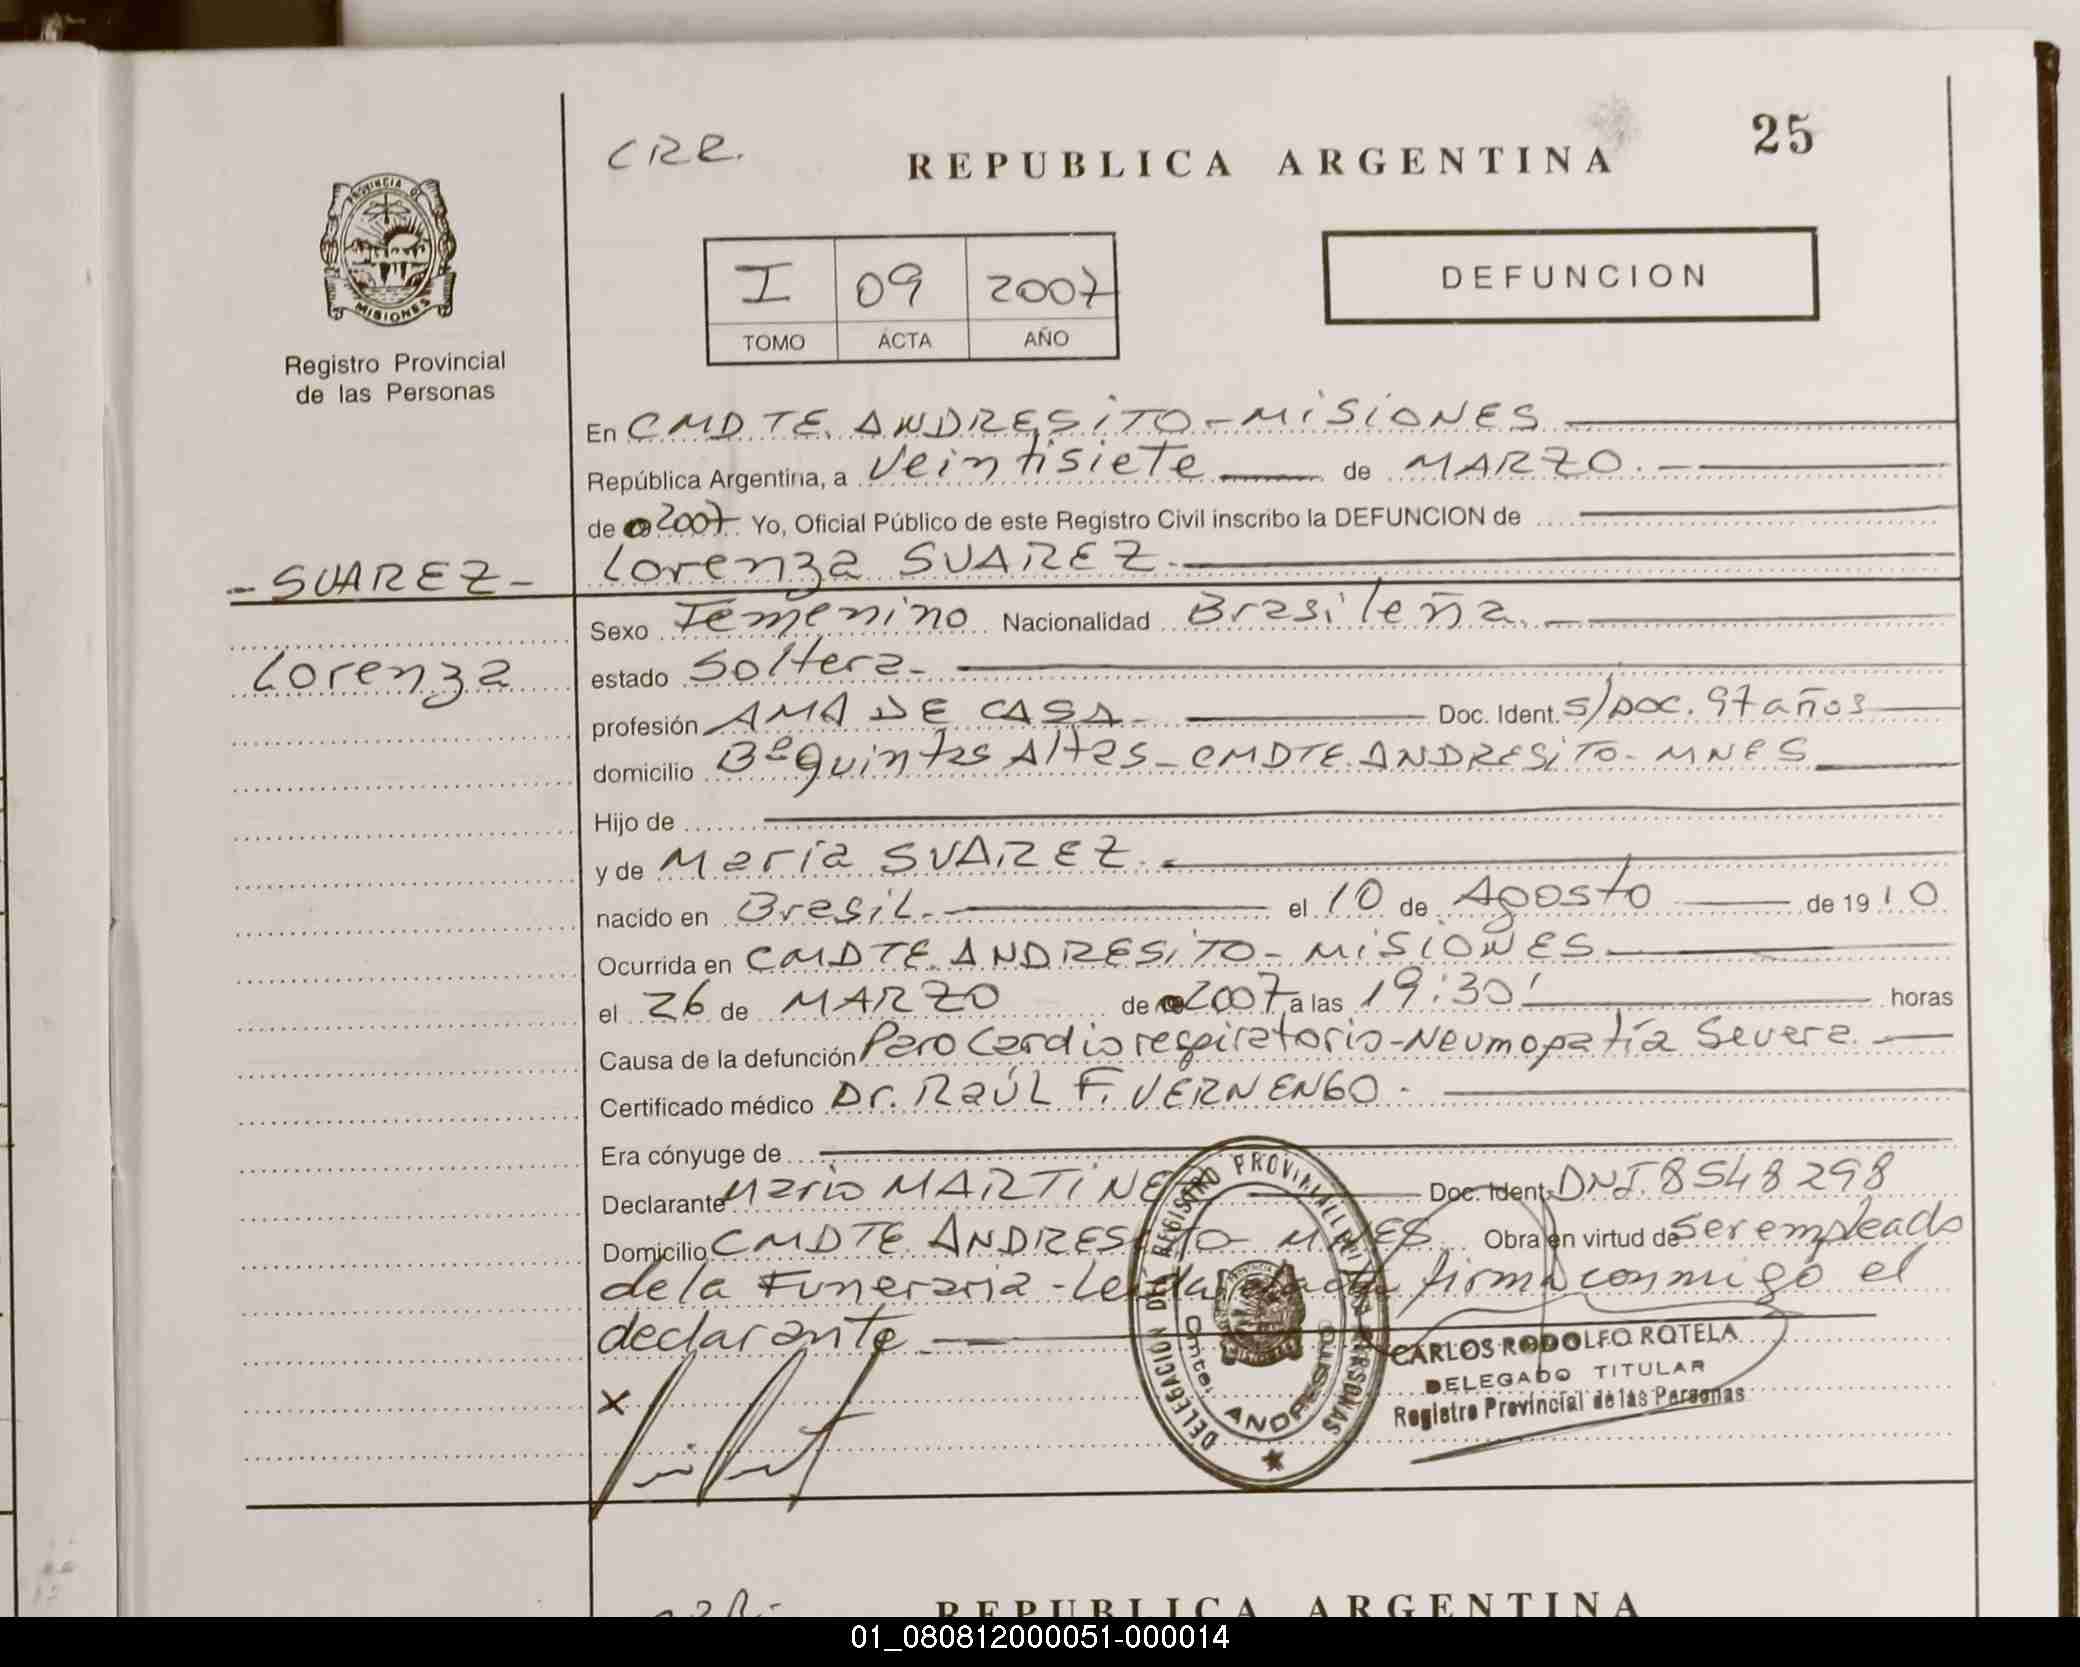 CRR.
REPUBLICA ARGENTINA
25
PROVINCIA DE
MISIONES
Registro Provincial
de las Personas
I 09 2007
TOMO ACTA AÑO
DEFUNCION
En CMDTE. ANDRESiTO - MiSiONES
República Argentina, a veintisiete de MARZO. -
de 2007 Yo, Oficial Público de este Registro Civil inscribo la DEFUNCION de
- SUAREZ -
Lorenza SUAREZ. -
Sexo Femenino Nacionalidad Brasileña. -
Lorenza
estado Soltera -
profesión AMA DE CASA - Doc. Ident. S/DOC. 97 años
domicilio Bº Quintas Altas - CMDTE. ANDRESiTO - MNES
Hijo de
y de María SUAREZ. -
nacido en Brasil. - el 10 de Agosto de 1910
Ocurrida en CMDTE. ANDRESiTO - MiSiONES
el 26 de MARZO de 2007 a las 19:30' horas
Causa de la defunción Paro Cardiorespiratorio - Neumopatía Severa
Certificado médico Dr. RAÚL F. VERNENGO. -
Era cónyuge de
Declarante Mario MARTiNE Doc. Ident. DNI. 8548298
Domicilio CMDTE ANDRESiTO - MNES Obra en virtud de ser empleado
de la Funeraria - Leída el acta firma conmigo el
declarante. -
X
DELEGACION DEL REGISTRO PROVINCIAL DE LAS PERSONAS
Cmte. ANDRESITO
CARLOS RODOLFO ROTELA
DELEGADO TITULAR
Registro Provincial de las Personas
REPUBLICA ARGENTINA
01_080812000051-000014